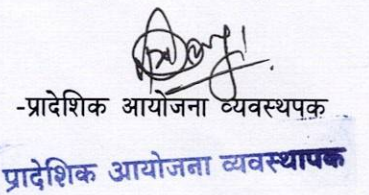 -प्रादेशिक आयोजना व्यवस्थपक
प्रादेशिक आयोजना व्यवस्थापक